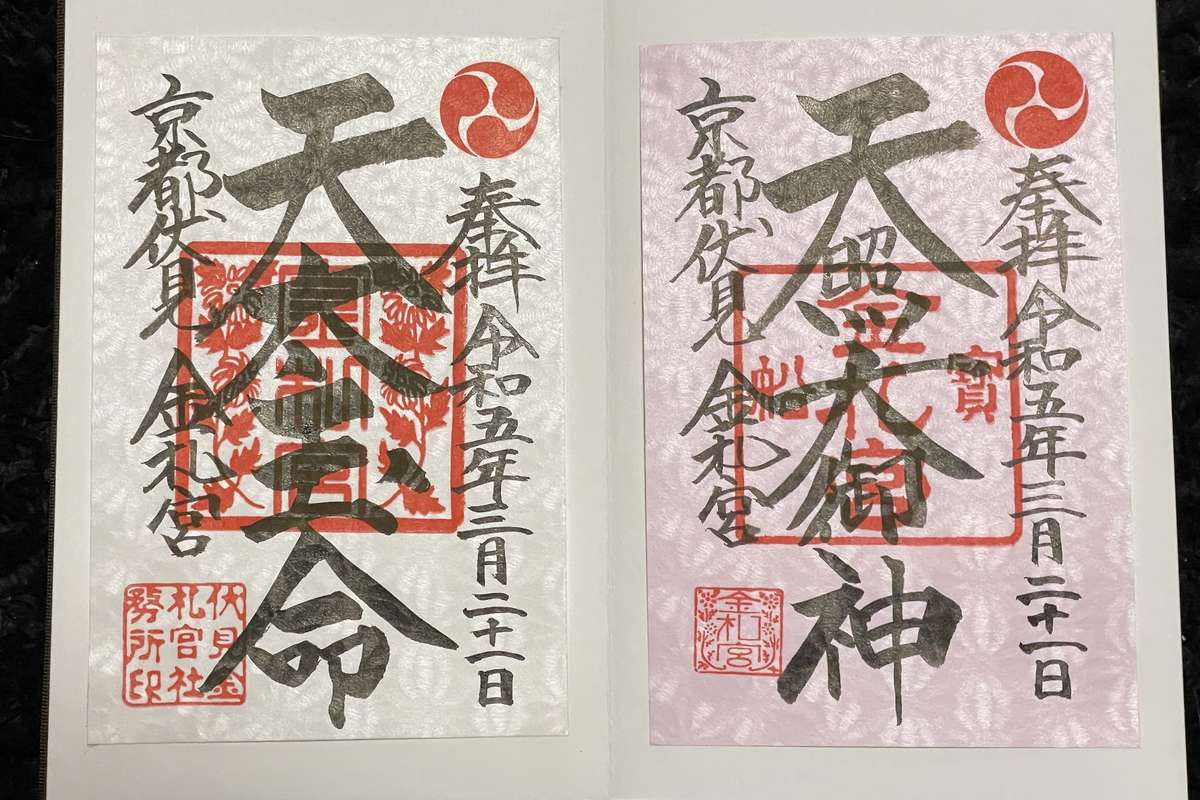 奉拝 令和五年三月二十一日
天照大御神
京都伏見 金札宮
寶
金札宮
金札宮
奉拝 令和五年三月二十一日
天太玉命
京都伏見 金札宮
金札宮
伏見金
札宮社
務所印